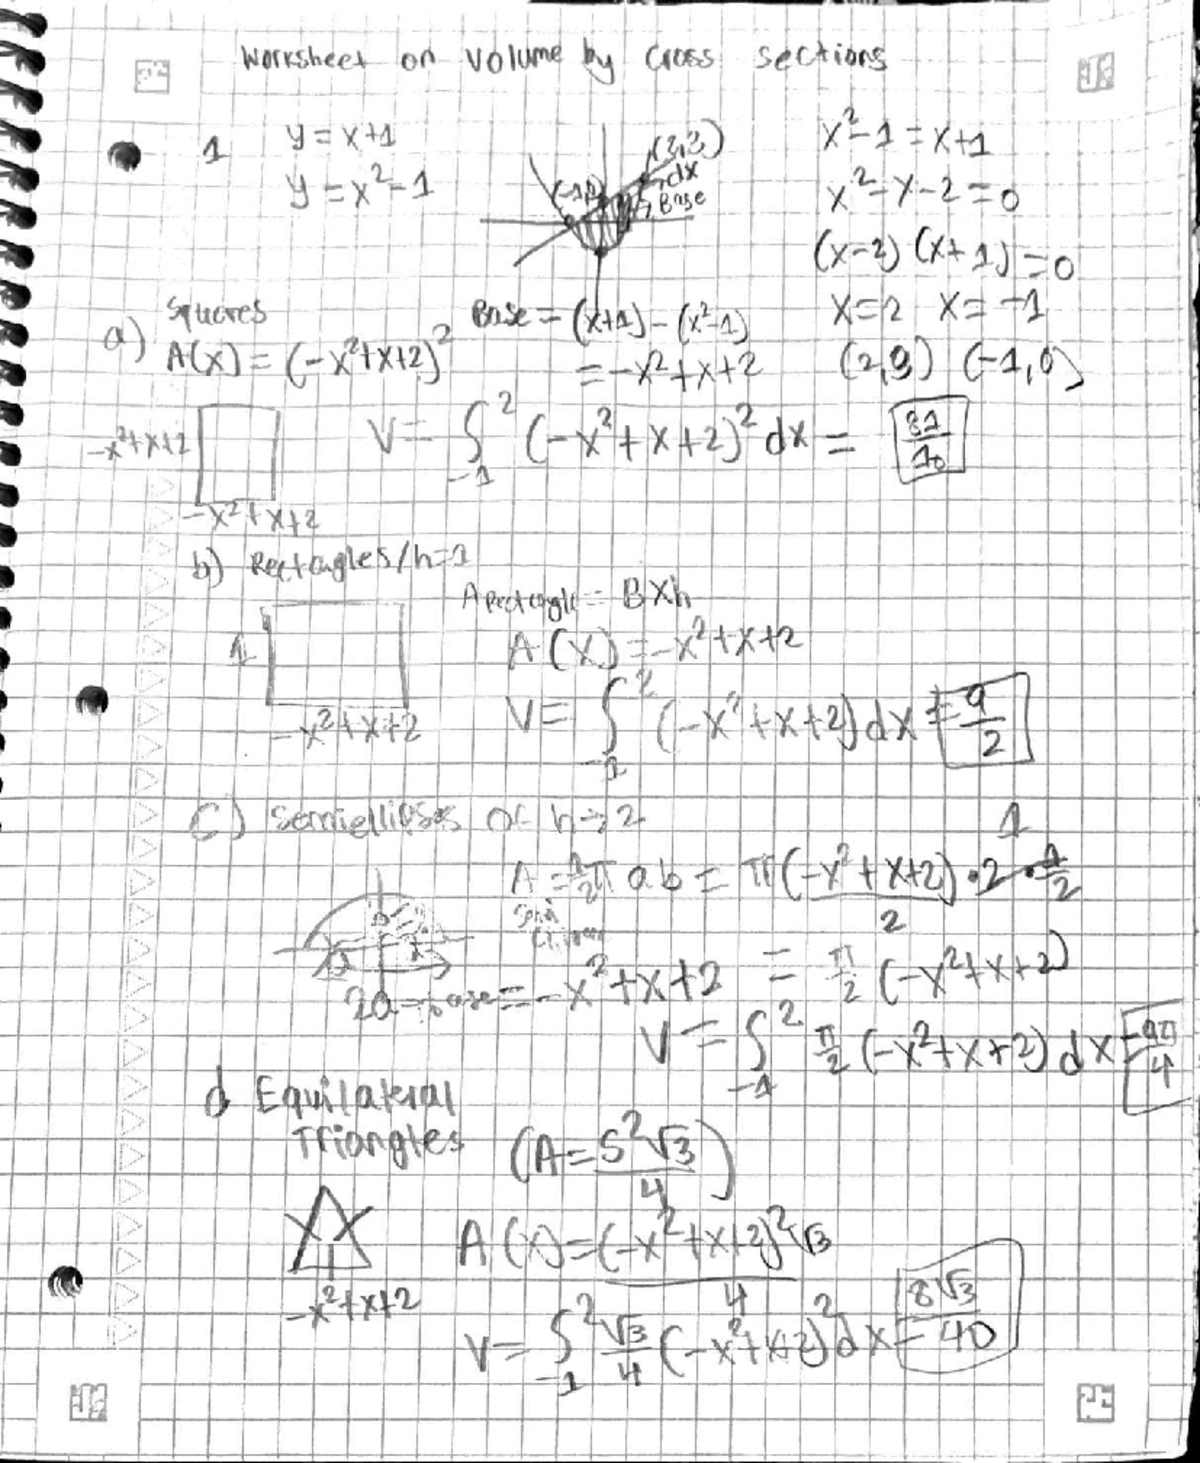 Worksheet on Volume by Cross sections
1 y = x+1
y = x²-1
(2,3)
dx
Base
(-1,0)
x²-1 = x+1
x²-x-2=0
(x-2)(x+1)=0
x=2 x=-1
(2,3) (-1,0)
a) Squares
A(x) = (-x²+x+2)²
Base = (x+1)-(x²-1)
= -x²+x+2
-x²+x+2
-x²+x+2
V = ∫₋₁² (-x²+x+2)² dx = 81/10
b) Rectangles/h=1
A Rectangle = B×h
1
-x²+x+2
A(x) = -x²+x+2
V = ∫₋₁² (-x²+x+2)dx = 9/2
C) Semiellipses of h→2
A = 1/2 π ab = π(-x²+x+2)/2 · 2 · 1/2
1
b
2a = base = -x²+x+2
= π/2 (-x²+x+2)
V = ∫₋₁² π/2 (-x²+x+2) dx = 9π/4
d Equilateral
Triangles
(A = S²√3/4)
-x²+x+2
A(x) = (-x²+x+2)²√3/4
V = ∫₋₁² √3/4 (-x²+x+2)² dx = 8√3/40